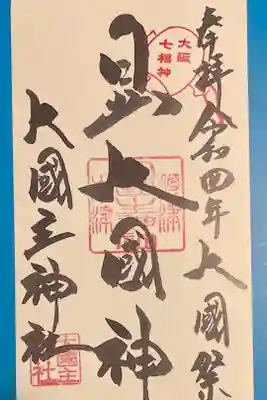 奉拝 令和四年 大國祭
大阪
七福神
日出大國神
大國主神社